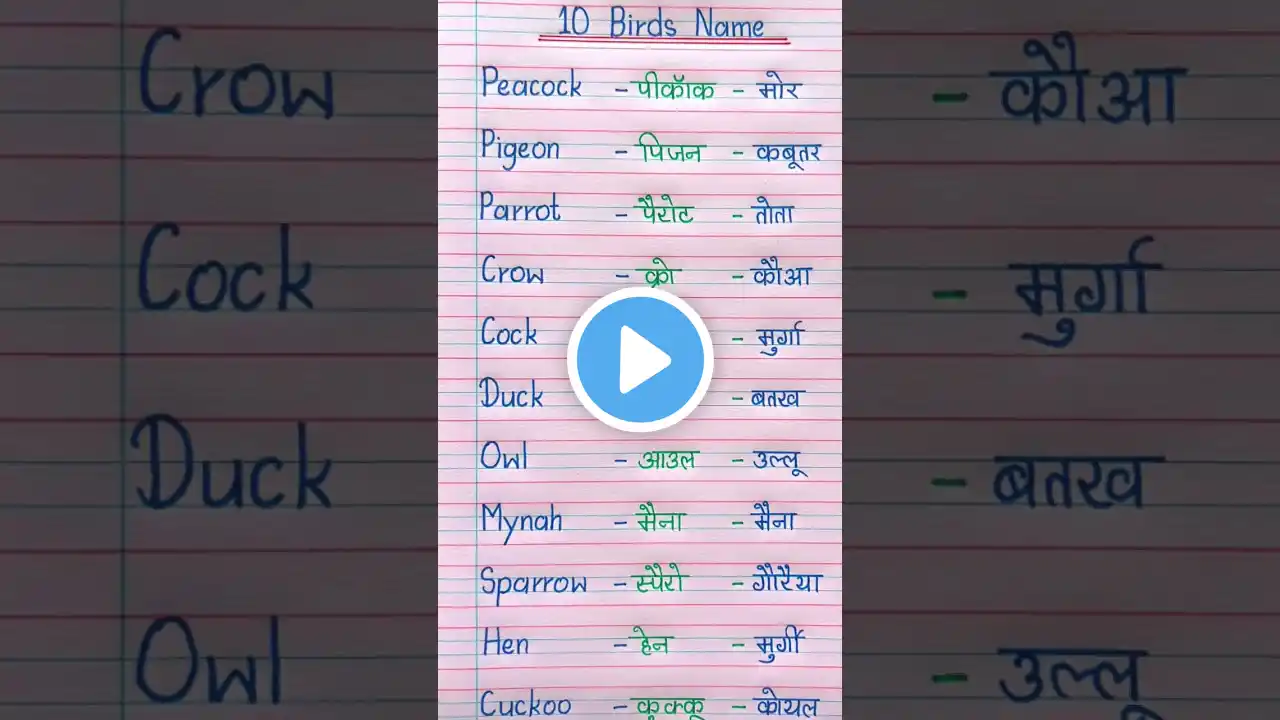 10 Birds Name
Peacock - पीकॉक - मोर
Pigeon - पिजन - कबूतर
Parrot - पैरोट - तोता
Crow - क्रो - कौआ
Cock - मुर्गा
Duck - बतख
Owl - आउल - उल्लू
Mynah - मैना - मैना
Sparrow - स्पैरो - गौरैया
Hen - हेन - मुर्गी
Cuckoo - कुक्कू - कोयल
Crow - कौआ
Cock - मुर्गा
Duck - बतख
Owl - उल्लू